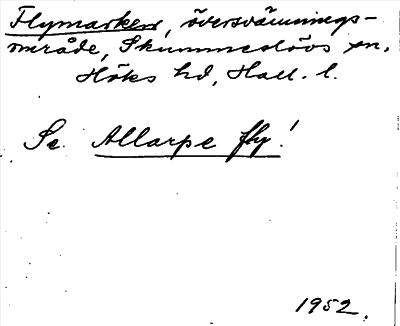 Flymarken, översvämnings-
område, Skummeslövs sn,
Höks hd, Hall. l.
Se Allarps fly!
1952.